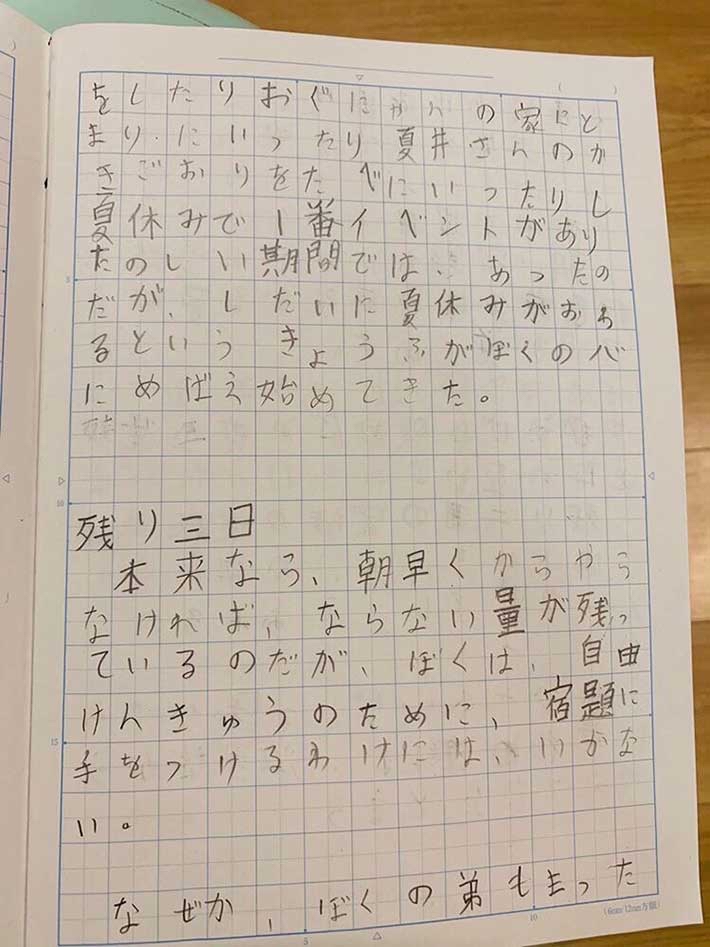 をしたりおぐにゃんの家にと
まりにいったり夏井さんのか
きごおりをたべにいったりし
夏休みで一番イベントがあり
たのしい期間では、あったの
だが、しだいに夏休みがおわ
るというきょうふがぼくの心
にめばえ始めてきた。
残り三日
本来なら、朝早くからやら
なければ、ならない量が残っ
ているのだが、ぼくは、自由
けんきゅうのために、宿題に
手をつけるわけには、いかな
い。
なぜか、ぼくの弟もまった
(6mm/12mm方眼)
5
10
15
5
10